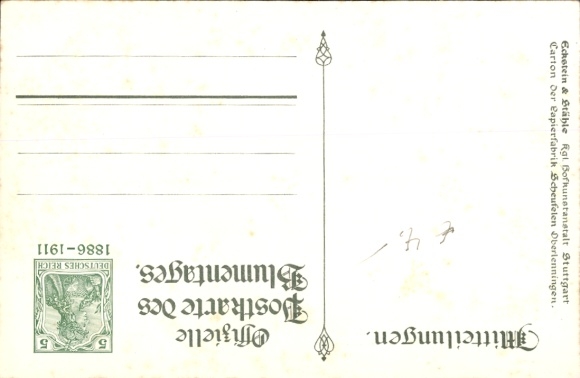 Mitteilungen.
Offizielle
Postkarte des
Blumentages.
5 5
DEUTSCHES REICH
1886-1911
Eckstein & Stähle Kgl. Hofkunstanstalt Stuttgart.
Carton der Papierfabrik Scheufelen Oberlenningen.